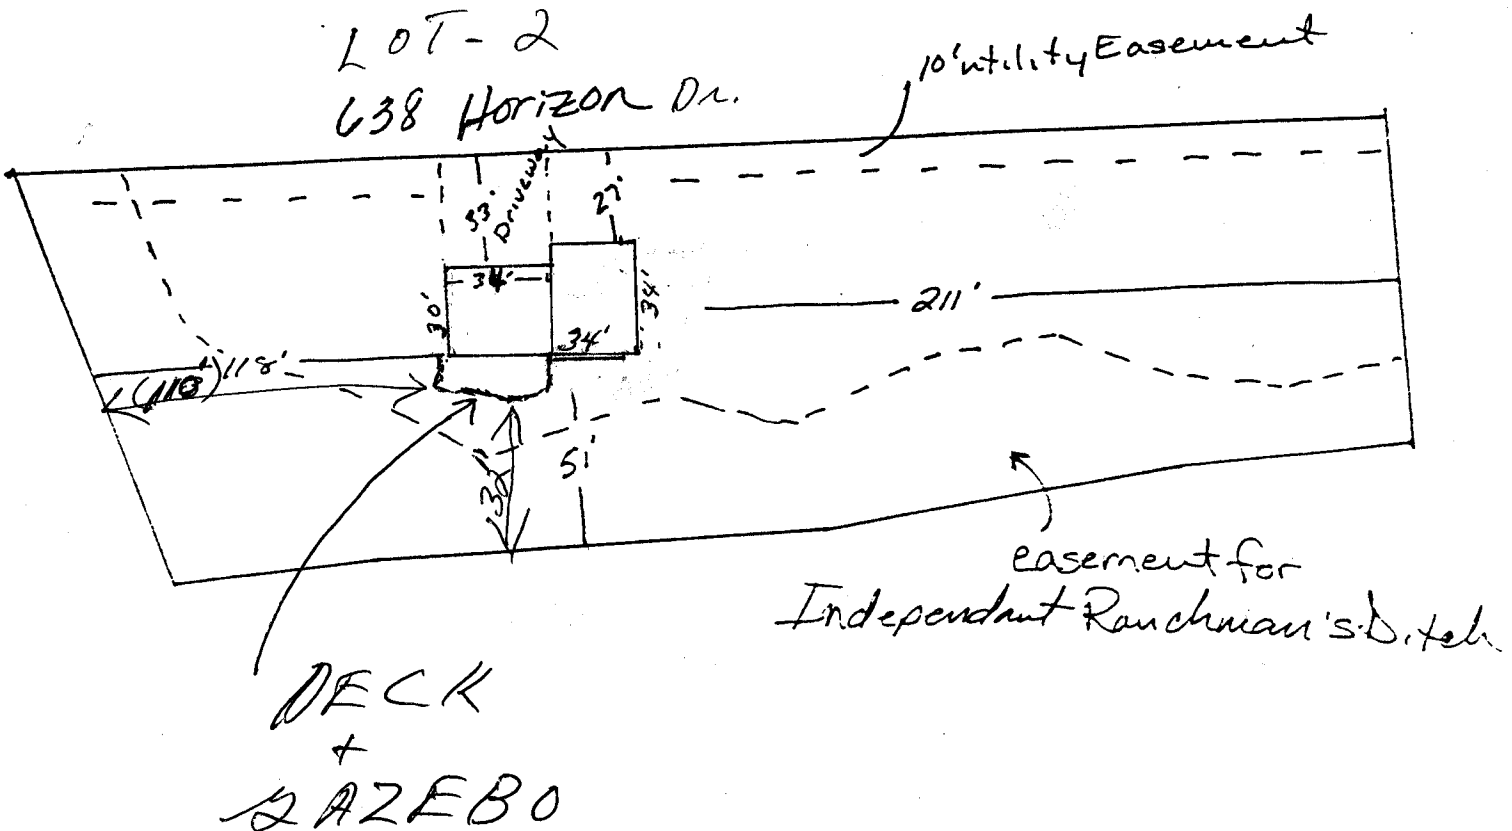 LOT-2
638 Horizon Dr.
10' utility Easement
Driveway
33'
27'
34'
30'
34'
34'
211'
118'
51'
32'
easement for
Independant Ranchman's Ditch
DECK
+
GAZEBO